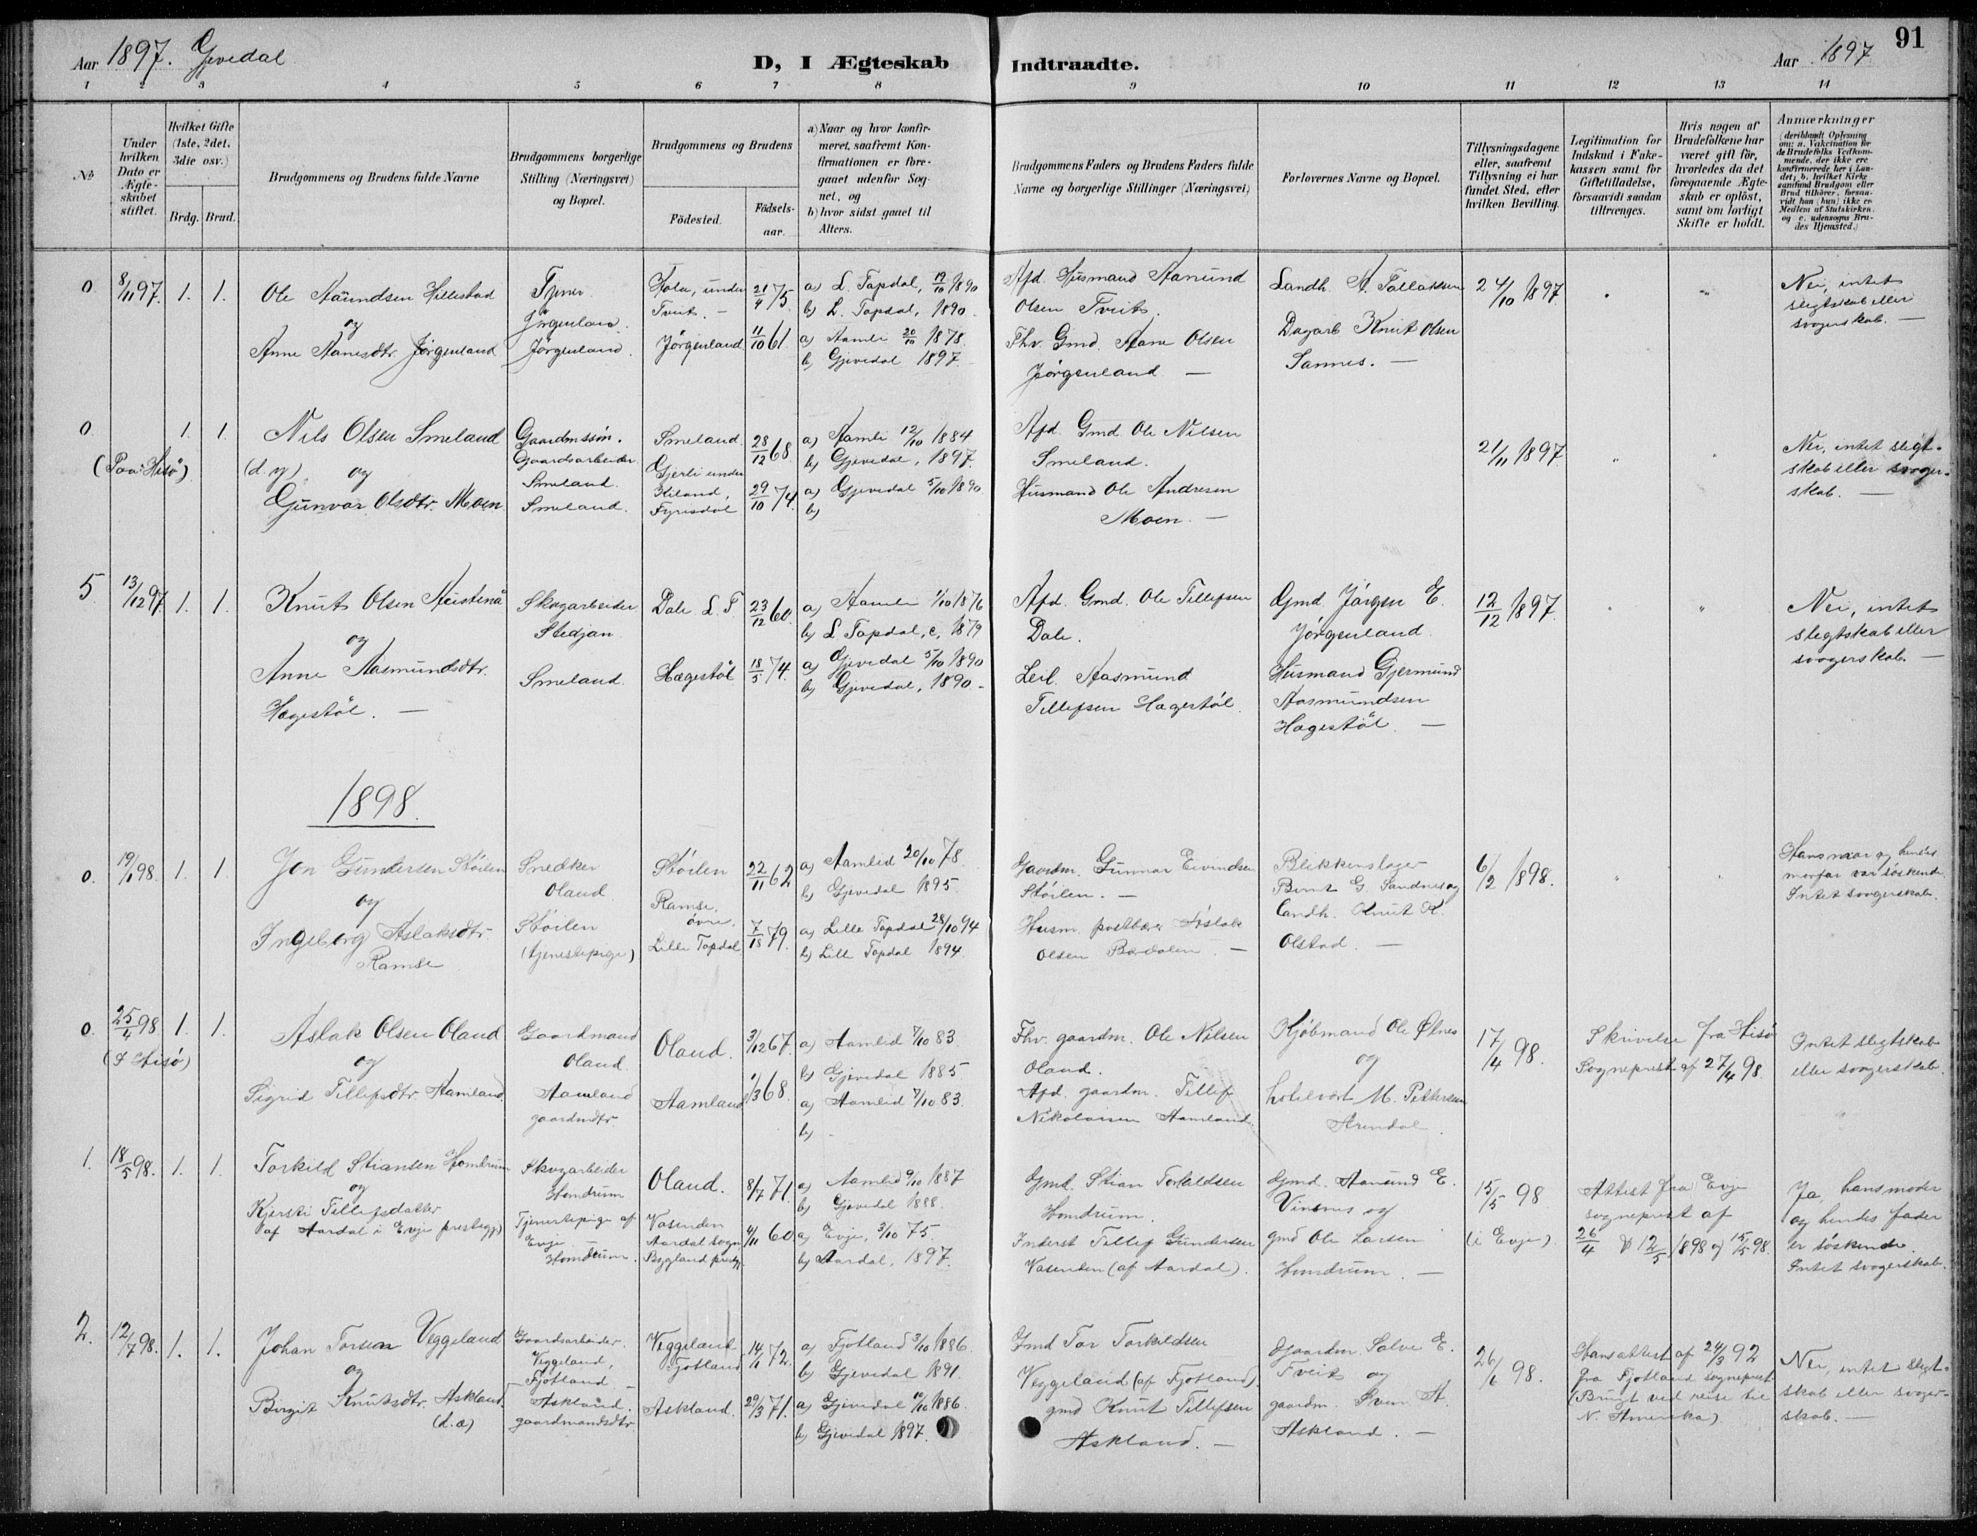 Aar 1897. Gjevedal
D, I Ægteskab Indtraadte.
Aar 1897
91
1 2 3 4 5 6 7 8 9 10 11 12 13 14
No
Under hvilken Dato er Ægteskabet stiftet.
Hvilket Gifte (1ste, 2det, 3die osv.)
Brdg. Brud.
Brudgommens og Brudens fulde Navne
Brudgommens borgerlige Stilling (Næringsvei) og Bopæl.
Brudgommens og Brudens
Födested.
Födselsaar.
a) Naar og hvor konfirmeret, saafremt Konfirmationen er foregaaet udenfor Sognet, og
b) hvor sidst gaaet til Alters.
Brudgommens Faders og Brudens Faders fulde Navne og borgerlige Stillinger (Næringsvei)
Forlovernes Navne og Bopæl.
Tillysningsdagene eller, saafremt Tillysning ei har fundet Sted, efter hvilken Bevilling.
Legitimation for Indskud i Enkekassen samt for Giftetilladelse, forsaavidt saadan tiltrænges.
Hvis nogen af Brudefolkene har været gift för, hvorledes da det foregaaende Ægteskab er oplöst, samt om lovligt Skifte er holdt.
Anmærkninger
0 8/11 97. 1. 1.
Ole Aanundsen Hillestad
og
Anne Aanesdtr. Jörgenland
Tjener
Jörgenland.
Jörgenland.
under
Tveit. -
Jörgenland
21/4 75
11/10 61.
a) L. Topdal, 19/10 1890
b) L. Topdal, 1890.
a) Aamli 20/10 1878.
b) Gjevedal 1897.
Afd. Husmand Aanund
Olsen Tveit.
Fhv. Gmd. Aane Olsen
Jörgenland. -
Landh. A. Tallaksen
Dagarb. Knut Olsen
Sannes. -
24/10 1897
Nei, intet
slegtskab eller
svogerskab. -
0 1. 1.
(Paa Hisö)
Nils Olsen Smeland
(d. y.) og
Gunvor Olsdtr. Moen
Gaardmssön.
Gaardsarbeider
Smeland.
Smeland.
Smeland
Gjerli under
Fyrisdal
28/12 68.
29/10 74.
a) Aamli 12/10 1884
b) Gjevedal, 1897.
a) Gjevedal 5/10 1890
b)
Afd. Gmd. Ole Nilsen
Smeland.
Husmand Ole Andresen
Moen. -
21/11 1897
Nei, intet slegt-
skab eller svoger-
skab. -
5 13/12 97 1. 1.
Knut Olsen
og
Anne Aasmundsdtr.
Hægestöl. -
Skogarbeider
Stedjan.
Smeland.
Dale L. T
Hægestöl
23/12 60.
18/5 74.
a) Aamli 1/10 1876
b) L Topdal, c. 1879
a) Gjevedal 5/10 1890
b) Gjevedal, 1890 -
Afd. Gmd. Ole Tellefsen
Dale.
Leil. Aasmund
Tellefsen Hægestöl.
Gmd Jörgen E.
Jörgenland.
Husmand Gjermund
Aasmundsen
Hægestöl. -
12/12 1897.
Nei, intet
slegtskab eller
svogerskab. -
1898.
0. 19/1 98. 1. 1.
Jon Gundersen Stöilen
og
Ingeborg Aslaksdtr
Ramse
Snedker
Oland.
Stöilen
(tjenestepige)
Stöilen
Ramse,
övre,
Lille Topdal
22/11 62
7/18 79.
a) Aamlid 20/10 78.
b) Gjevedal 1895.
a) Lille Topdal 28/10 94
b) Lille Topdal 1894.
Gaardm. Gunnar Eivindsen
Stöilen. -
Husm. postbærer Aslak
Olsen -
Blikkenslager
Bernt G. Sandnes og
Landh. Knut K.
Olstad. -
6/2 1898.
Hans mor og hendes
morfar var söskende.
Intet svogerskab.
0. 25/4 98 1. 1.
(I Hisö)
Aslak Olsen Oland
og
Sigrid Tellefsdtr. Aamland
Gaardmand
Oland.
Aamland
gaardmdtr.
Oland.
Aamland
3/12 67.
1/3 68.
a) Aamlid 7/10 83.
b) Gjevedal 1885
a) Aamlid 7/10 83.
b) -
Fhv. gaardm. Ole Nilsen
Oland.
Afd. gaardm. Tellef
Nikolaisen Aamland
Kjöbmand Ole Ötnes
og
hotelvært M. Pettersen
Arendal.
17/4 98.
Skrivelse fra Hisö
Sogneprest af 27/4 98.
Intet slegtskab
eller svogerskab.
1. 18/5 98. 1. 1.
Torkild Stiansen Homdrum
og
Kjersti Tellefsdatter
(af Aardal i Evje prestegj)
Skogarbeider
Homdrum
Tjenestepige af
Evje -
Homdrum.
Oland.
Vasenden
Aardal sogn
Bygland prestgj.
8/7 71.
4/11 60.
a) Aamlid 9/10 1887
b) Gjevedal 1888.
a) Evje, 3/10 75.
b) Aardal, 1897.
Gmd. Stian Torkildsen
Homdrum.
Inderst Tellef Gundersen
Vasenden (af Aardal).
Gmd. Aanund E.
Vinenes og
gmd Ole Larsen
Homdrum. -
15/5 98
(i Evje).
Attest fra Evje
sogneprest af
26/4 & 12/5 1898 og 15/5 98.
Ja, hans moder
og hendes fader
er söskende.
Intet svogerskab.
2. 12/7 98. 1. 1.
Johan Torsen Veggeland
og
Birgit Knutsdtr. Askland
(d. a)
Gaardsarbeider
Veggeland,
Fjotland -
Askland.
gaardmandsdtr.
Veggeland
Fjotland
Askland.
14/1 72.
29/3 71.
a) Fjotland 3/10 1886.
b) Gjevedal 1891.
a) Gjevedal 10/10 1886
b) Gjevedal 1897.
Gmd Tor Torkildsen
Veggeland (af Fjotland).
gmd Knut Tellefsen
Askland. -
Gaardm. Salve E.
Tveit og
gaardm. Sven A.
Askland. -
26/6 98.
Hans attest af 24/3 92
fra Fjotland sogneprest
(Brugt ved reise til
N. Amerika)
Nei, intet slegt-
skab eller svoger-
skab. -